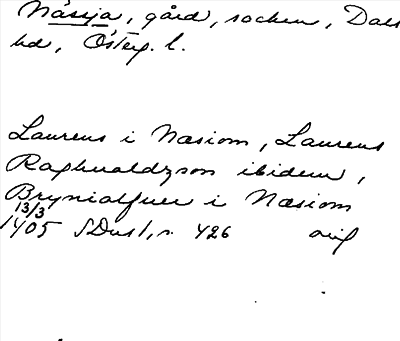 Nässja, gård, socken, Dals
hd, Österg. l.
Laurens i Næsiom, Laurens
Raghualdzson ibidem,
Bryniolfuer i Næsiom
13/3
1405 SDns 1, n. 426 orig